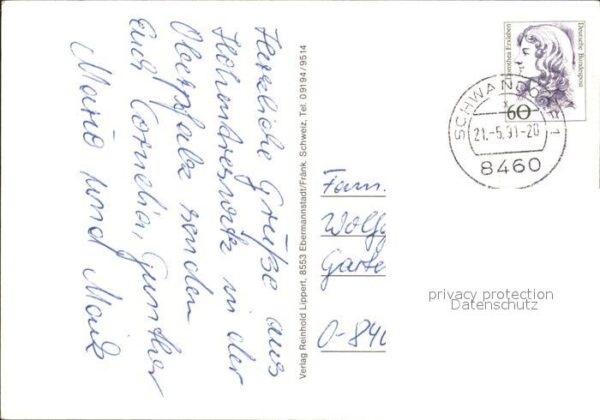 Herzliche Grüße aus
Hohentreswitz in der
Oberpfalz senden
euch Cornelia, Günther
Mario und Maik
Verlag Reinhold Lippert, 8553 Ebermannstadt/Fränk. Schweiz, Tel. 09194/9514
Deutsche Bundespost
Dorothea Erxleben
60
SCHWANDORF 1
21.-5.91-20
8460
Fam.
Wolfg
Garte
O-840
privacy protection
Datenschutz